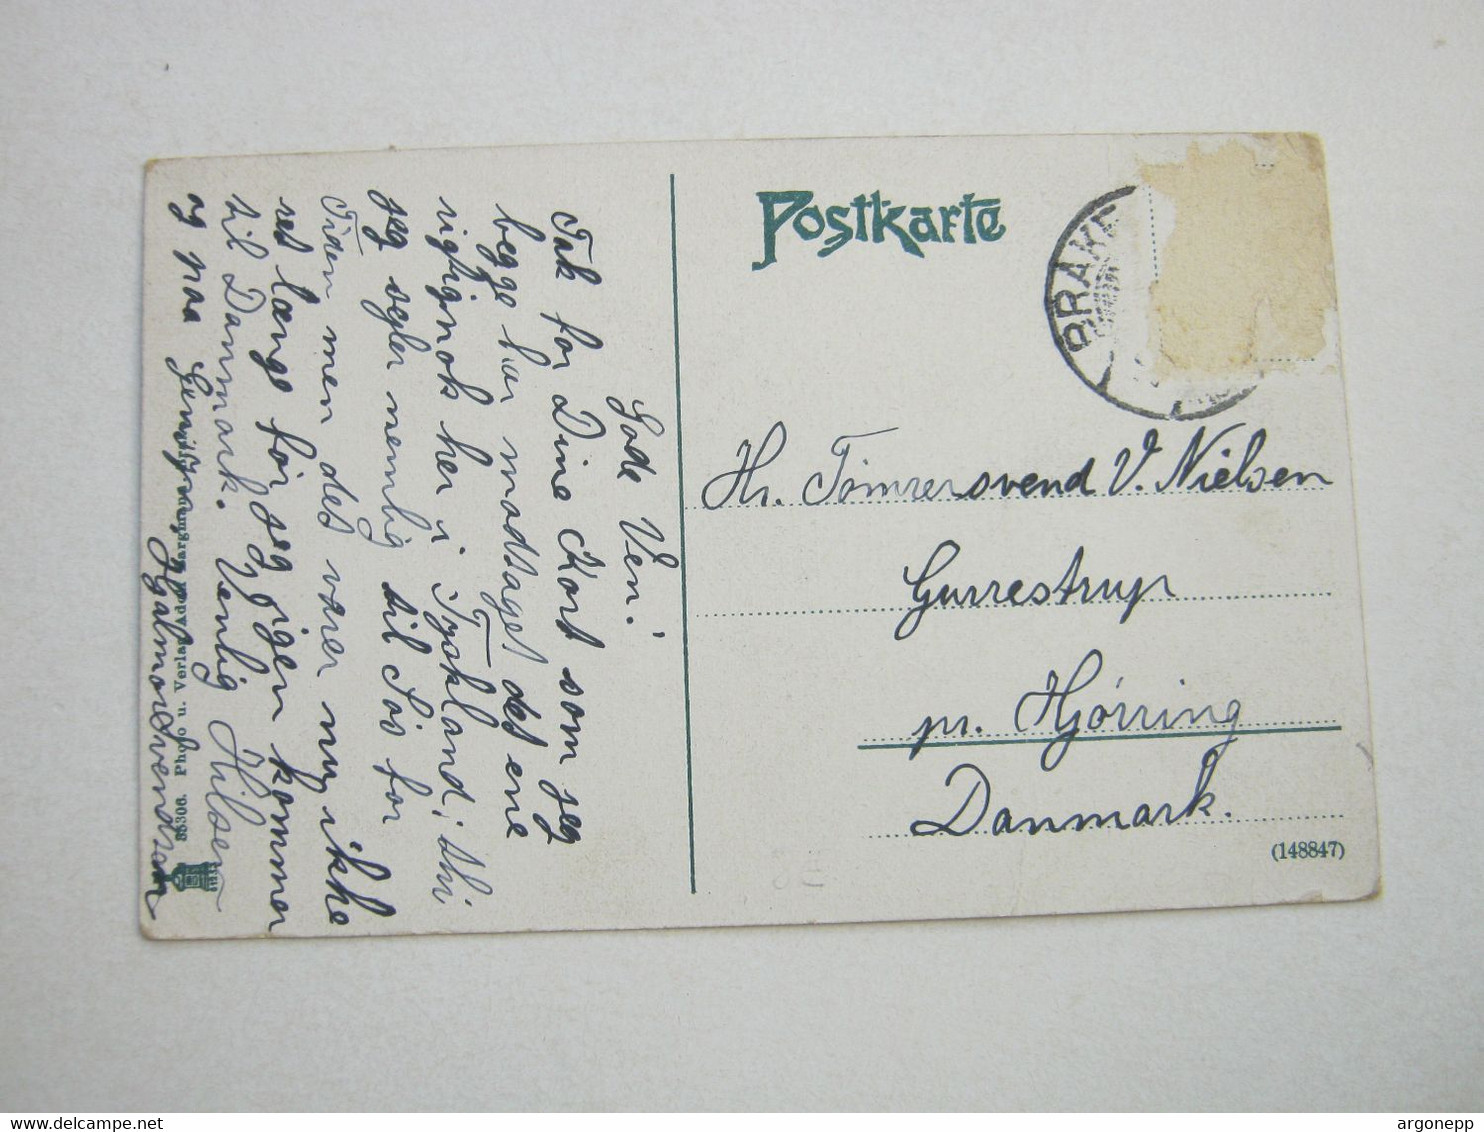 Postkarte
BRAKE
Hr. Tømrersvend V. Nielsen
Gurrestrup
pr. Hjørring
Danmark.
(148847)
Gode Ven!
Tak for Dine Kort som jeg
begge har modtaget det ene
rigtignok her i Tyskland, thi
jeg sejler nemlig til Søs for
Tiden men det varer nu ikke
ret længe før jeg igen kommer
til Danmark. Venlig Hilsen
og paa Gensyn
88306. Photo u. Verlag
argonepp